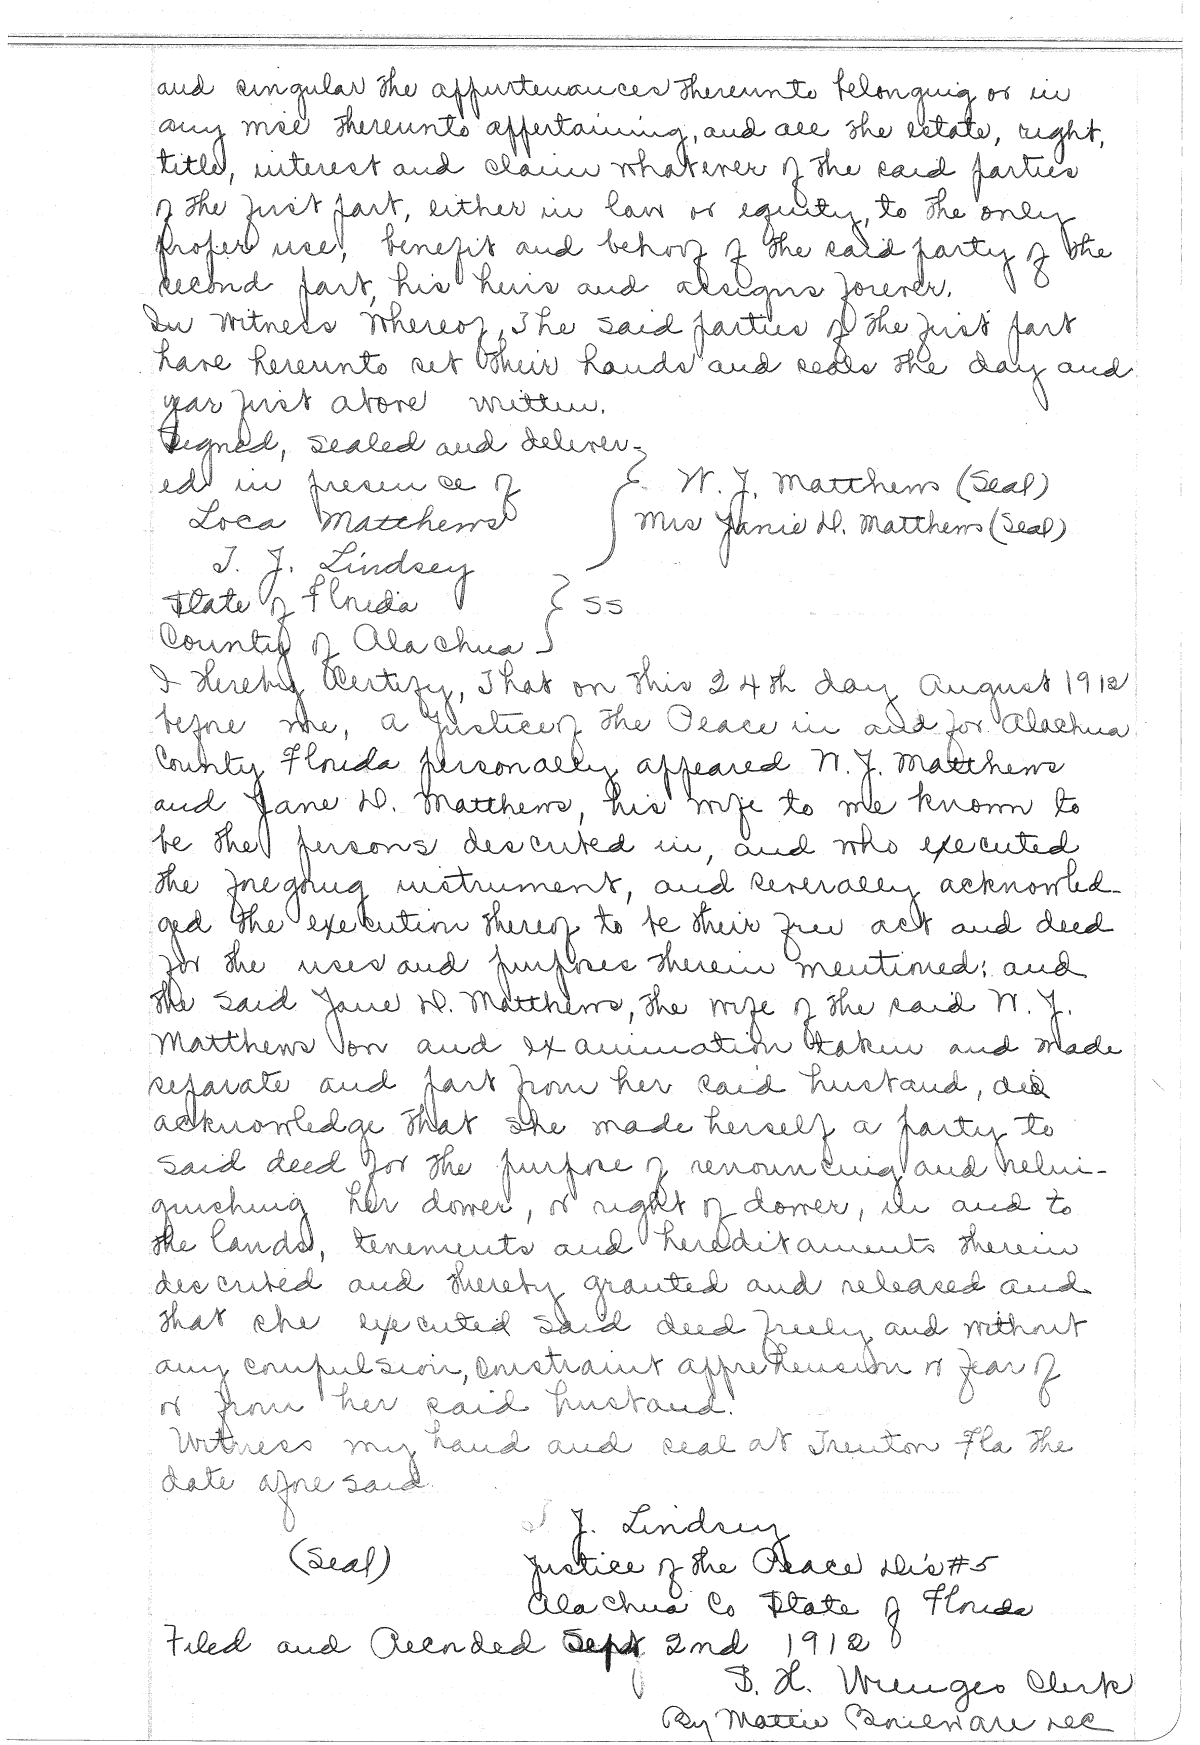 and singular the appurtenances thereunto belonging or in
any wise thereunto appertaining, and all the estate, right,
title, interest and claim whatever of the said parties
of the first part, either in law or equity, to the only
proper use, benefit and behoof of the said party of the
second part, his heirs and assigns forever.
In Witness Whereof, The said parties of the first part
have hereunto set their hands and seals the day and
year first above written.
Signed, sealed and deliver-
ed in presence of
Loca Matthews
T. J. Lindsey
W. J. Matthews (Seal)
Mrs Janie D. Matthews (Seal)
State of Florida
County of Alachua
SS
I Hereby Certify, That on this 24th day August 1912
before me, a Justice of the Peace in and for Alachua
County Florida personally appeared W. J. Matthews
and Jane D. Matthews, his wife to me known to
be the persons described in, and who executed
the foregoing instrument, and severally acknowled-
ged the execution thereof to be their free act and deed
for the uses and purposes therein mentioned; and
the said Jane D. Matthews, the wife of the said W. J.
Matthews on and examination taken and made
separate and part from her said husband, did
acknowledge that she made herself a party to
said deed for the purpose of renouncing and relin-
quishing her dower, or right of dower, in and to
the lands, tenements and hereditaments therein
described and thereby granted and released and
that she executed said deed freely and without
any compulsion, constraint apprehension or fear of
or from her said husband.
Witness my hand and seal at Trenton Fla the
date afore said
T J. Lindsey
(Seal) Justice of the Peace Dis #5
Alachua Co State of Florida
Filed and Recorded Sept 2nd 1912
S. H. Wienges Clerk
By Mattie Boulware DC